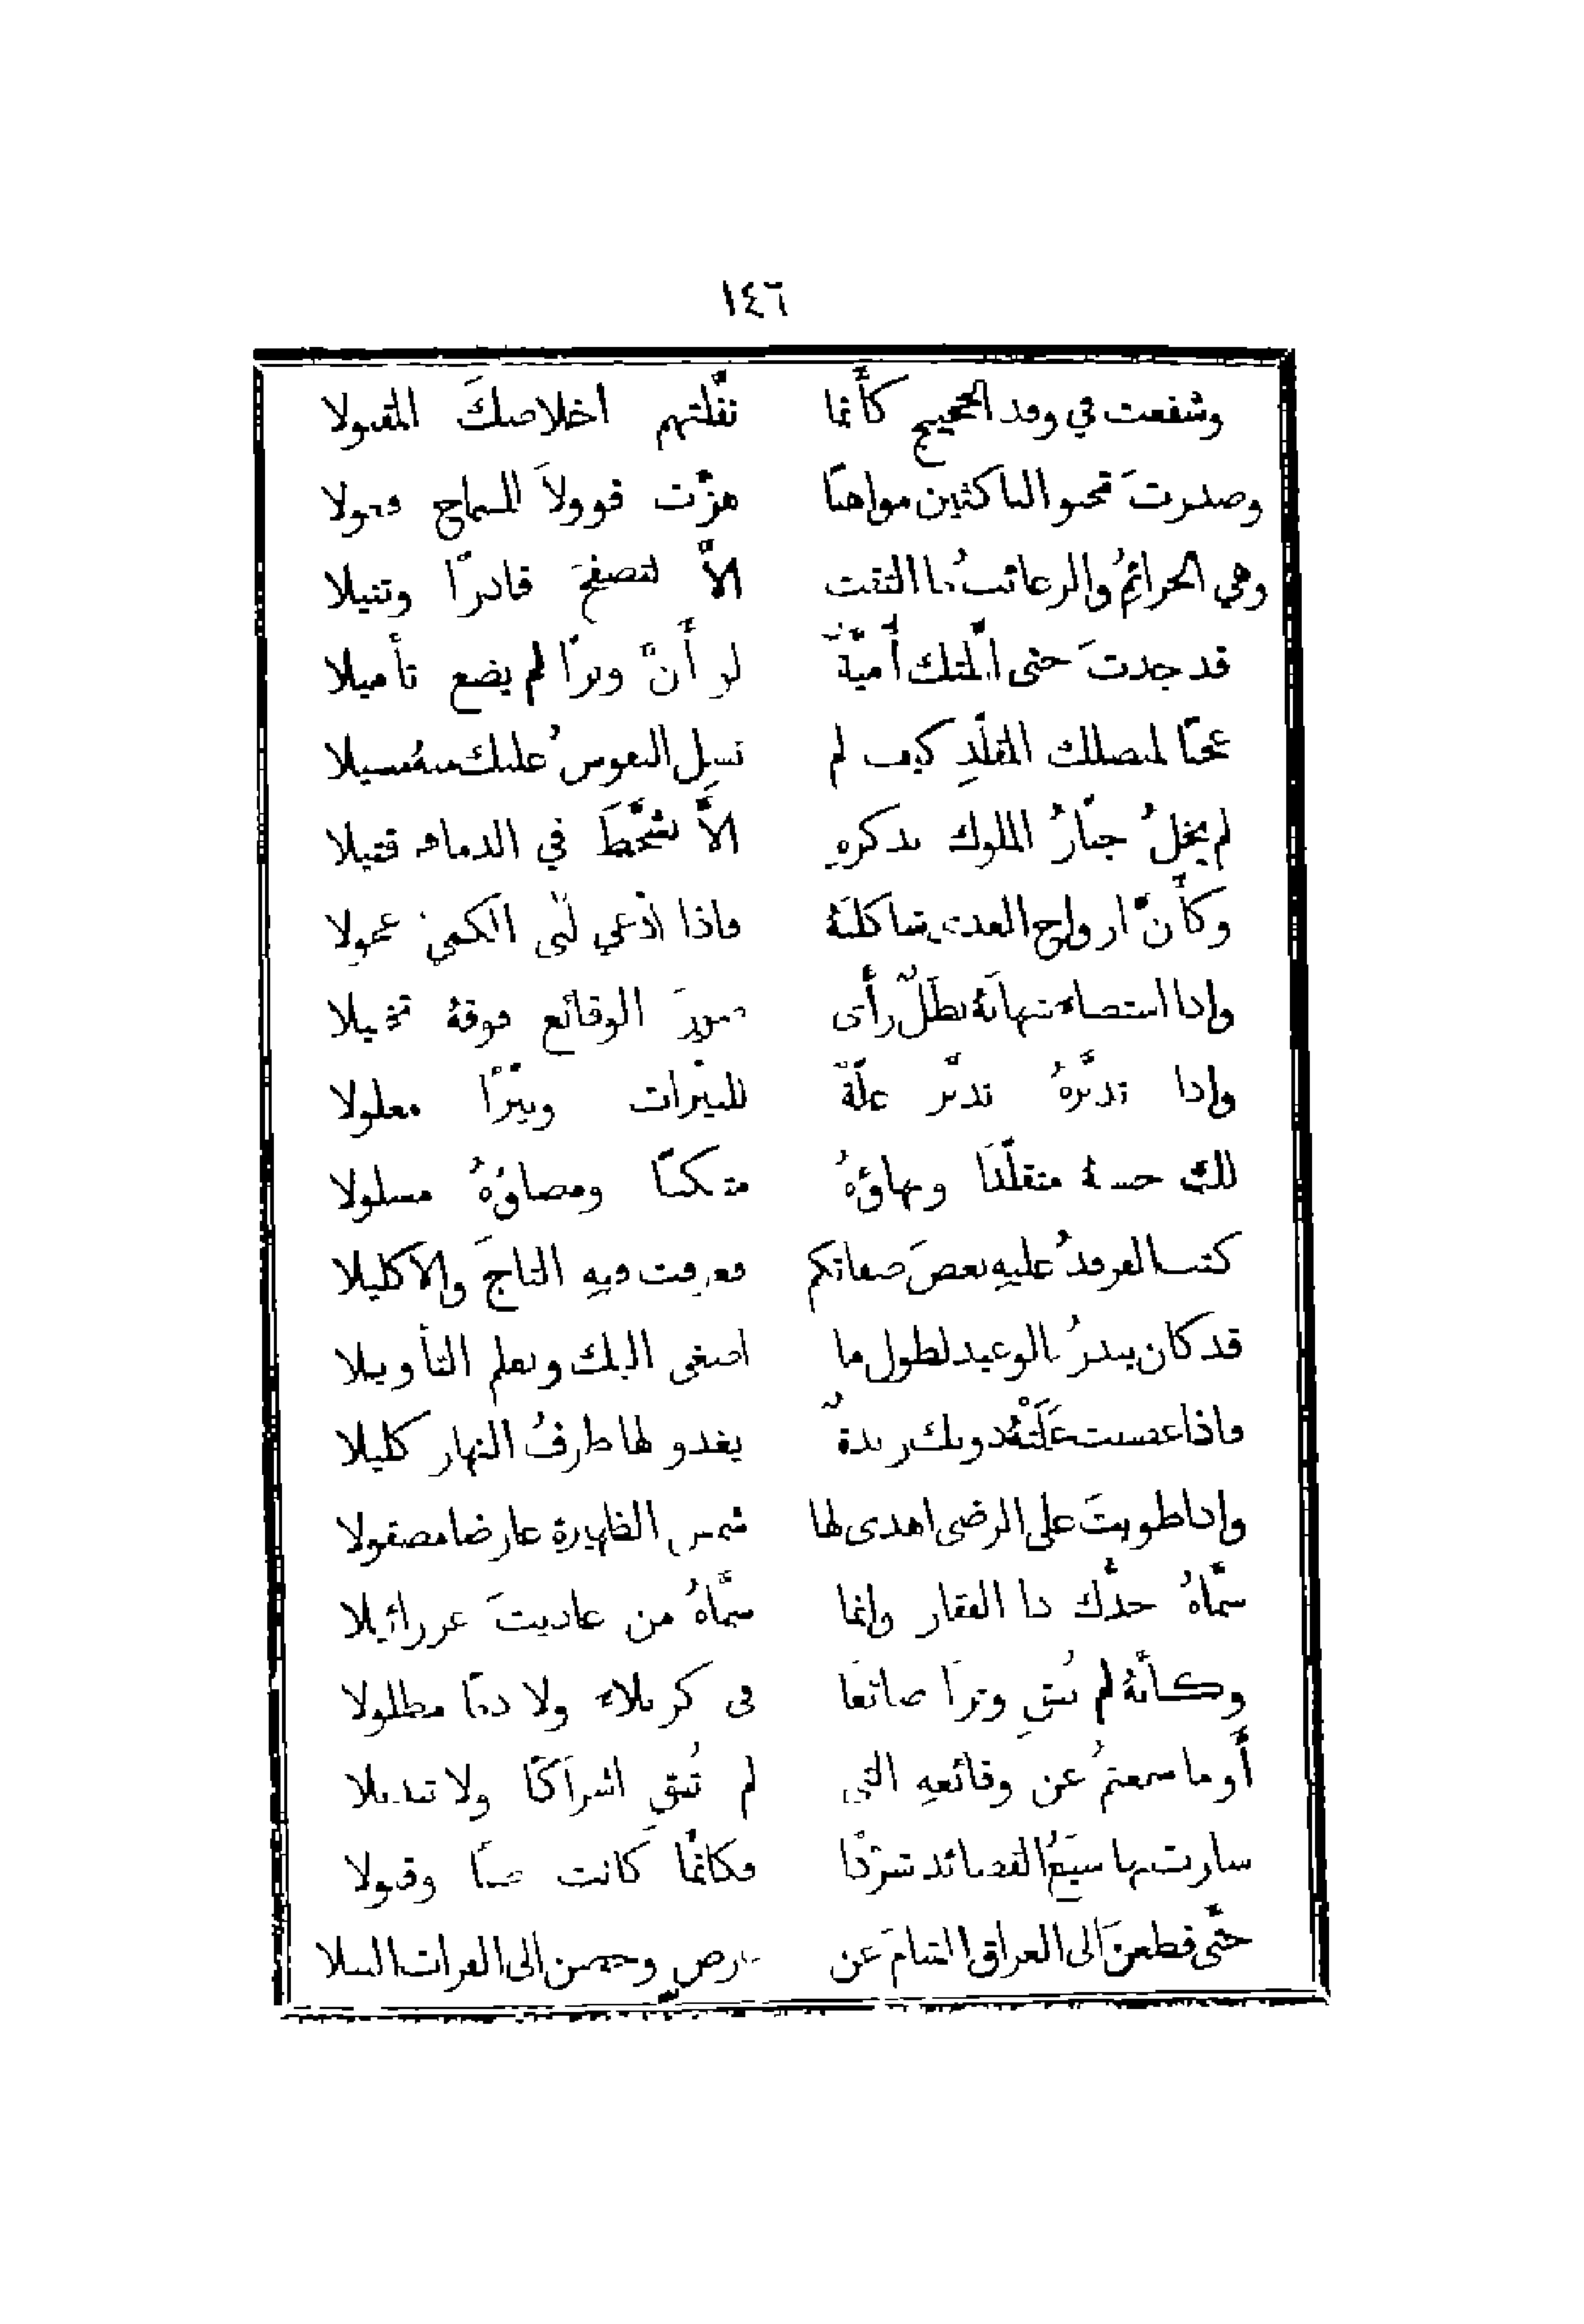 ١٤٦
وشفعت في وفد الحجيج كأَنَّما نفَّلتهم اخلاصكَ المقبولا
وصدرتَ تحبو الناكثين مواهبًا هزَّت قوولاً للسماح فعولا
وهي الجرائمُ والرغائبُ ما التقت الاَّ لتصفحَ قادرًا وتنيلا
قد جدتَ حتى املتك أُميَّةٌ لو أَنَّ وترًا لم يضع تأميلا
عجبًا لمنصلك المقلَّدِ كيف لم تسِل النفوسُ عليك منهُ مسيلا
لم يخلُ جبَّارُ الملوك بذكرهِ الاَّ تشحَّطَ في الدماء قتيلا
وكأَنَّ ارواح العدى شاكلنهُ فاذا دُعي لبَّى الكميَّ عجولا
واذا استضاء شهابَهُ بطلٌ رأَى صورَ الوقائع فوقهُ تخييلا
واذا تدبَّرهُ تدبَّر علَّةً للنيّرات ونيّرًا معلولا
لك حسنهُ متقلّدًا وبهاؤهُ متنكبًا ومضاؤهُ مسلولا
كتب الفرندُ عليهِ بعضَ صفاتكم فعرفت فيهِ التاجَ والاكليلا
قد كان ينذرُ بالوعيد لطول ما اصغى اليك ويعلم التأويلا
فاذا غضبت علتهُ دونك ربدةٌ يغدو لها طرفُ النهار كليلا
واذا طويتَ على الرضى اهدى لها شمس الظهيرة عارضا مصقولا
سمَّاهُ جدُّك ذا الفقار وانما سمَّاهُ من عاديتَ عزرائيلا
وكأنَّهُ لم يُبقِ وترًا ضائعًا في كربلاء ولا دمًا مطلولا
أَوما سمعتمُ عن وقائعهِ التي لم تُبقِ اشراكًا ولا تبديلا
سارت بها شيَعُ القصائد شرَّدًا فكانَّما كانت صبًا وقبولا
حتَّى قطعنَ الى العراق الشامَ عن عرضٍ وخضن الى الفرات النيلا